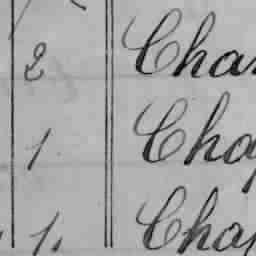 2 Chan
1 Chap
1. Chap